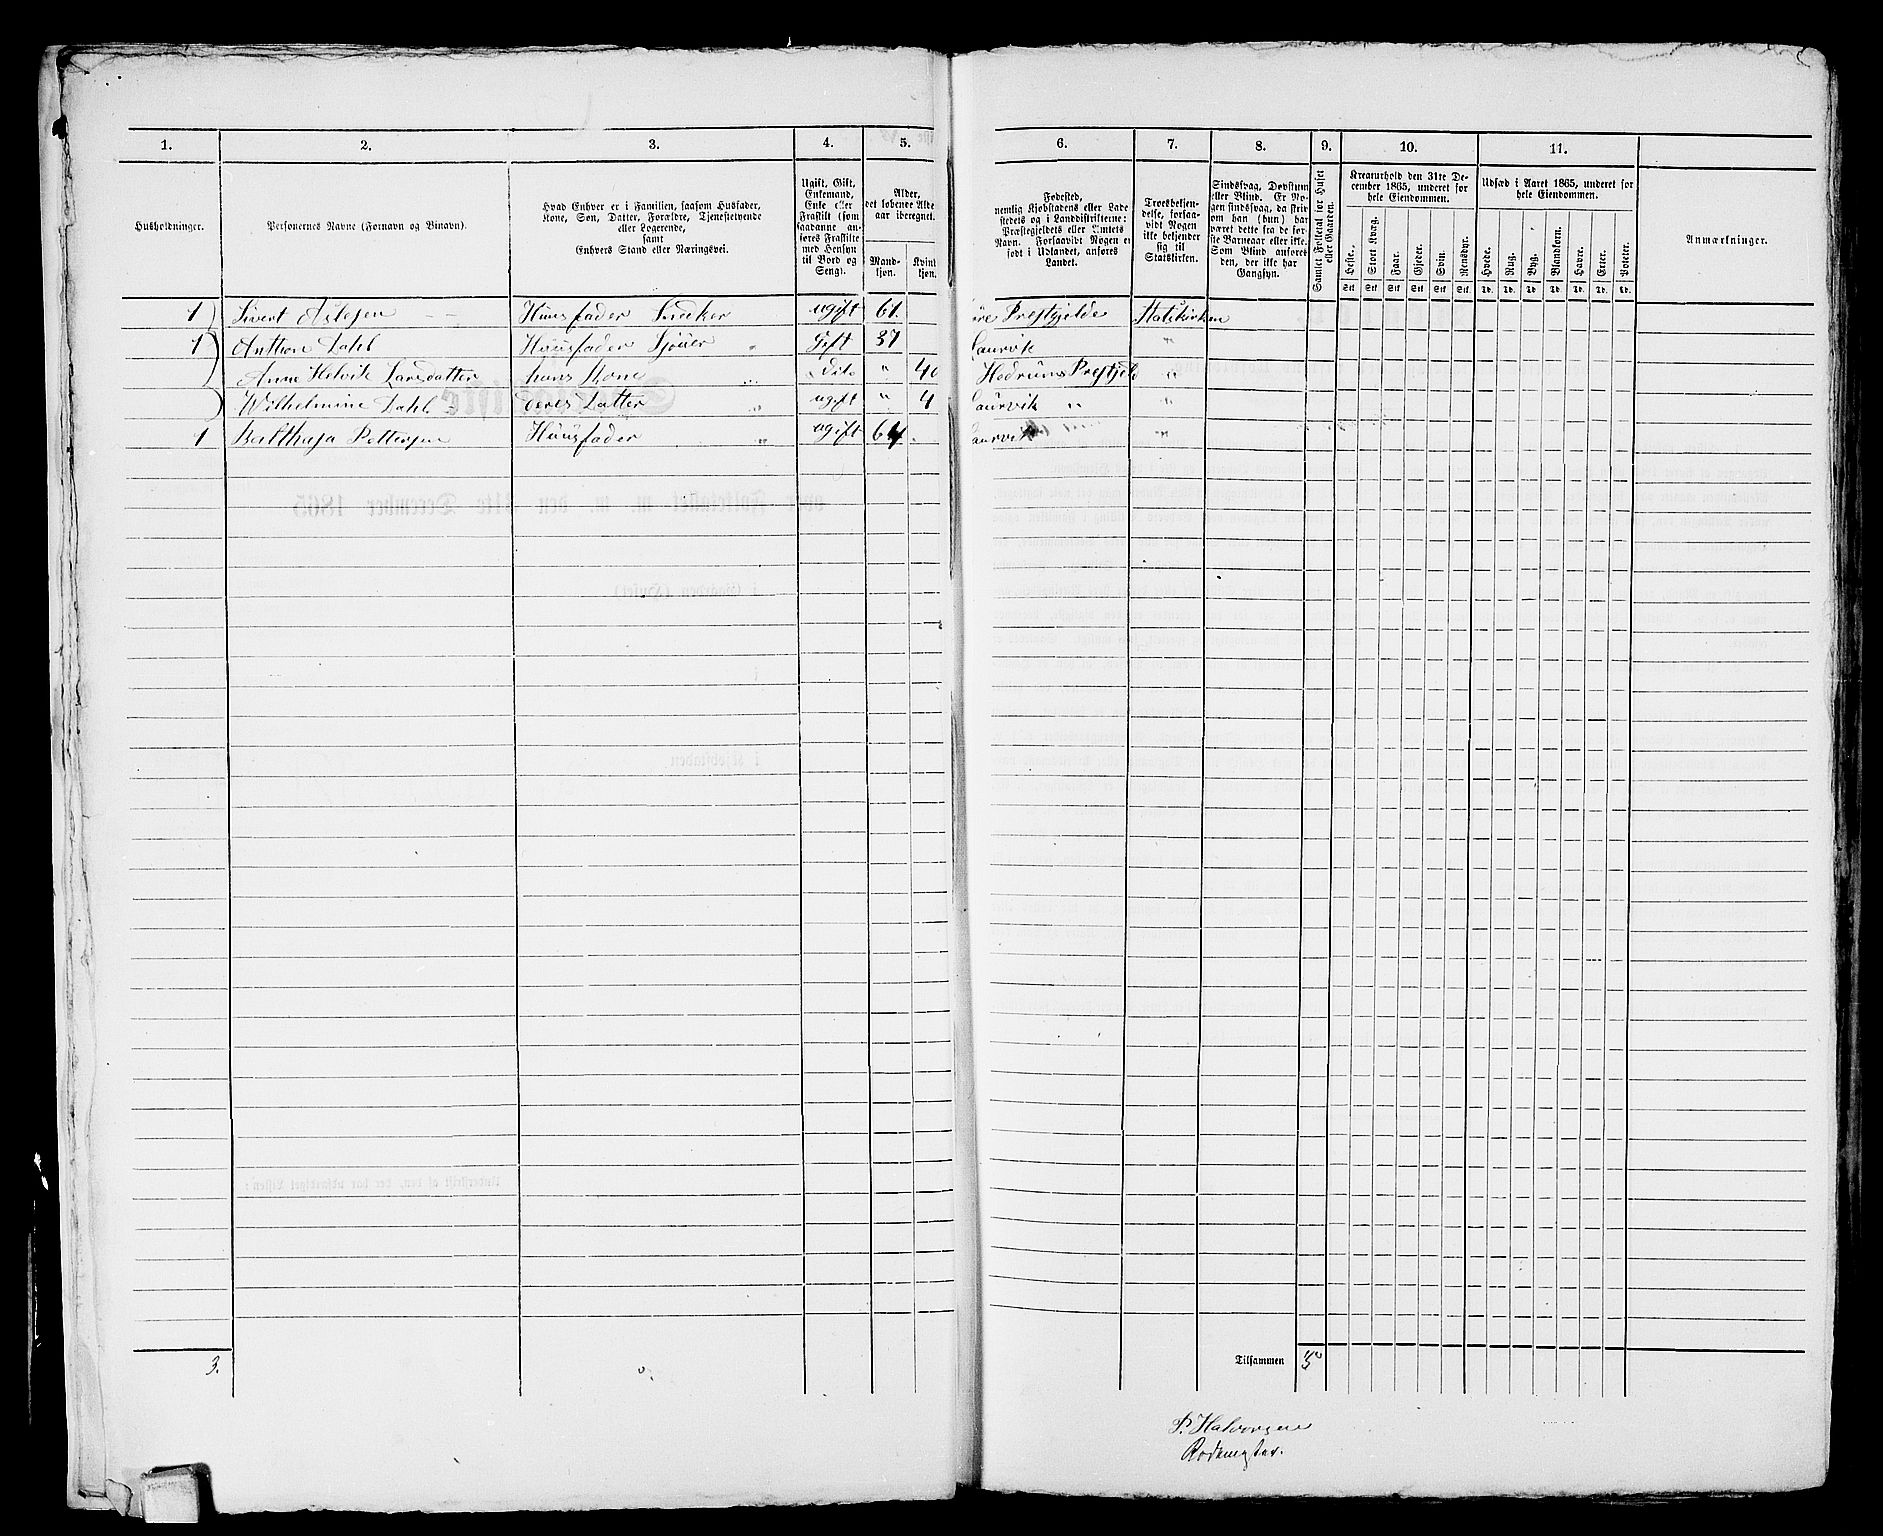 1. 2. 3. 4. 5. 6. 7. 8. 9. 10. 11.
Husholdninger.
Personernes Navne (Fornavn og Binavn).
Hvad Enhver er i Familien, saasom Husfader,
Kone, Søn, Datter, Forældre, Tjenestetyende
eller Logerende,
samt
Enhvers Stand eller Næringsvei.
Ugift, Gift,
Enkemand,
Enke eller
Fraskilt (som
saadanne an-
føres Fraskilte
med Hensyn
til Bord og
Seng).
Alder,
det løbende Alders-
aar iberegnet.
Mand-
kjøn.
Kvind
kjøn.
Fødested,
nemlig Kjøbstadens eller Lade
stedets og i Landdistrikterne:
Præstegjeldets eller Amtets
Navn. Forsaavidt Nogen er
født i Udlandet, anføres
Landet.
Troesbekjen-
delse, forsaa-
vidt Nogen
ikke bekjender
sig til
Statskirken.
Sindssvag, Døvstum
eller Blind. Er No-
gen sindssvag, da skriv
om han (hun) har
været dette fra de før-
ste Barneaar eller ikke.
Som Blind anføres
den, der ikke har
Gangsyn.
Samlet Folketal for Huset
eller Gaarden.
Kreaturhold den 31te De-
cember 1865, underet for
hele Eiendommen.
Heste. Stort Kvæg. Faar. Gjeder. Svin. Rensdyr.
Stk Stk Stk Stk Stk Stk
Udsæd i Aaret 1865, underet for
hele Eiendommen.
Hvede. Rug. Byg. Blandkorn. Havre. Erter. Poteter.
Td. Td. Td. Td. Td. Td. Td.
Anmærkninger.
1 Sivert Aslesen Huusfader Snedker ugift 61 Prestgjelde Statskirken
1 Anthon Dahl Huusfader Sjouer Gift 37 Laurvik "
Anne Helvik Larsdatter hans Kone Dito " 40 Hedrums Prestjeld "
Wilhelmine Dahl deres Datter ugift " 4 Laurvik " "
1 Balthasa Pettersen Huusfader ugift 64 Laurvik "
3. Tilsammen 5
P. Halvorsen
Rodemester.